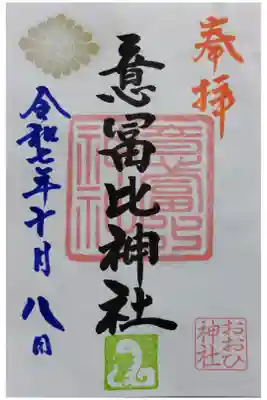 奉拝
意冨比神社
意富比神社
おおひ
神社
令和七年十月八日